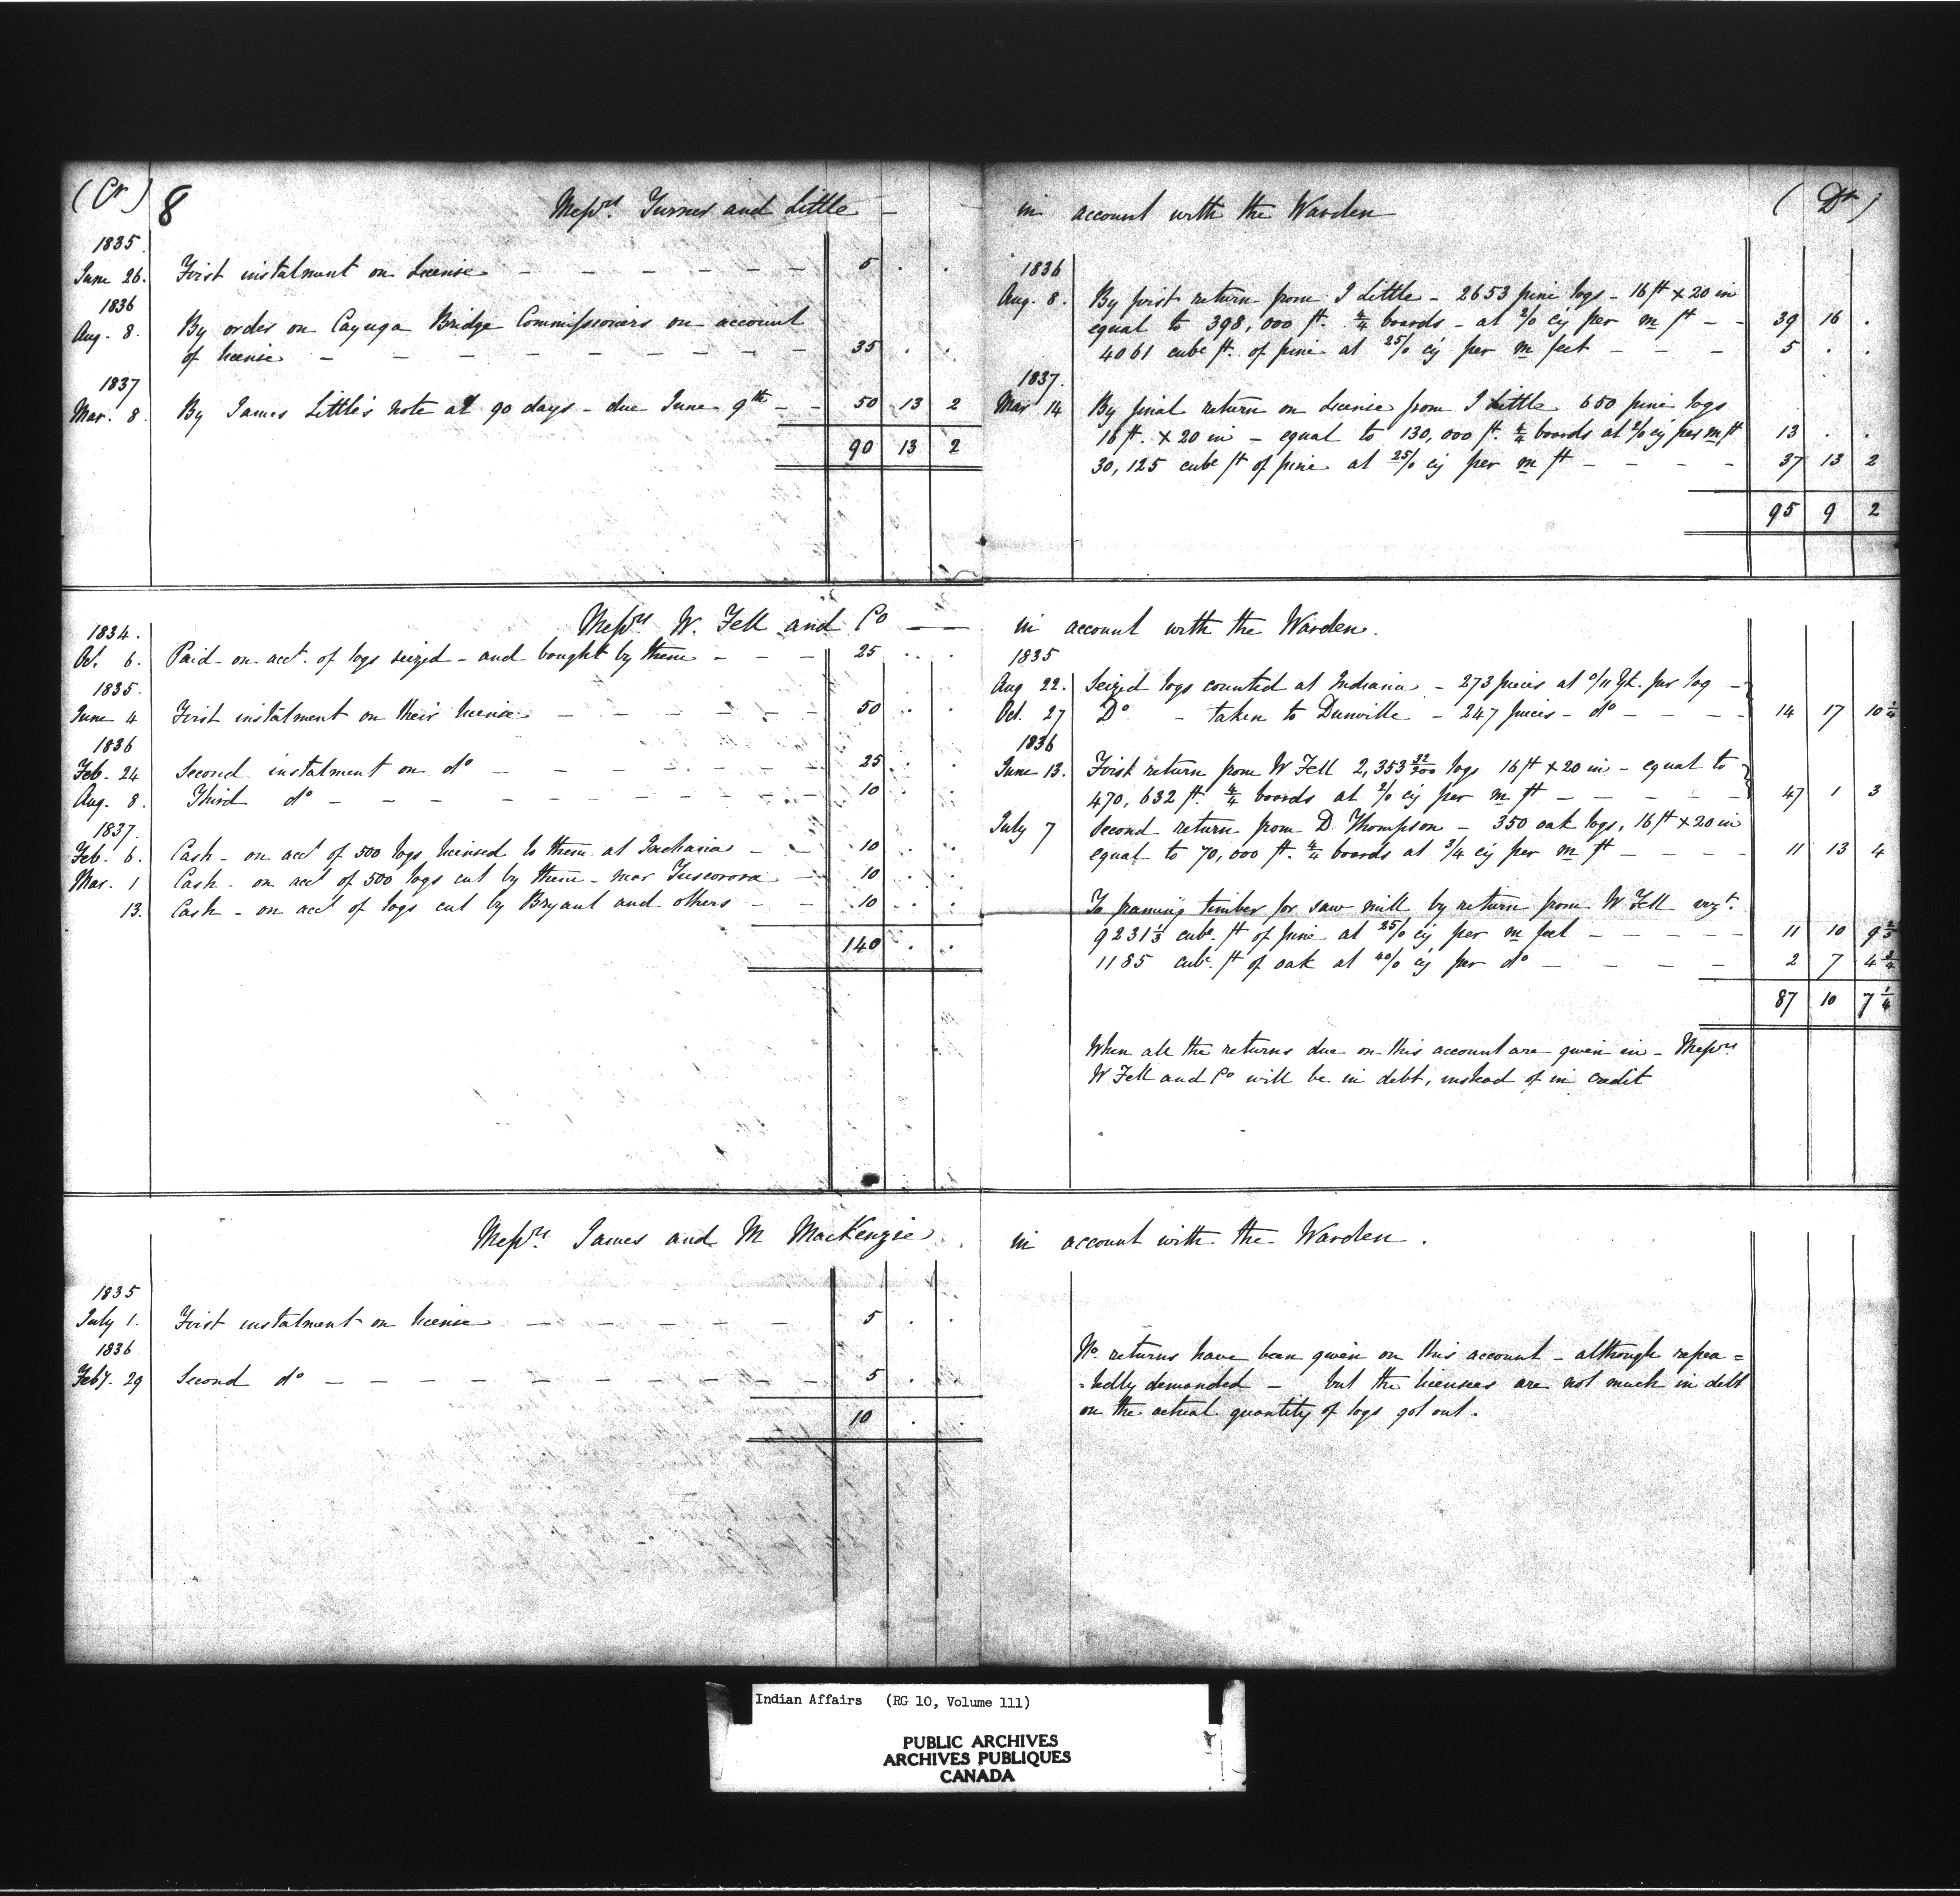 (Cr) 8 Messrs. Turner and Little –
1835.
June 26. First instalment on License – – – – – – – 5 . .
1836
Aug. 8. By order on Cayuga Bridge Commissioners on account
of license – – – – – – – – – 35 . .
1837
Mar. 8. By James Little's note at 90 days – due June 9th – – 50 13 2
90 13 2
in account with the Warden (Dr)
1836
Aug. 8. By first return from J Little – 2653 pine logs – 16 ft x 20 in
equal to 398,000 ft. 4/4 boards – at 2/0 cy per m ft – – 39 16 .
4061 cubc ft. of pine at 25/0 cy per m feet – – – 5 . .
1837.
Mar 14 By final return on License from J Little 650 pine logs
16 ft. x 20 in – equal to 130,000 ft. 4/4 boards at 2/0 cy per m ft 13 . .
30,125 cubc ft of pine at 25/0 cy per m ft – – – – 37 13 2
95 9 2
Messrs W. Fell and Co ——
1834.
Oct. 6. Paid on acct. of logs seized – and bought by them – – – 25 . .
1835.
June 4 First instalment on their license – – – – – – 50 . .
1836
Feb. 24 Second instalment on do – – – – – – – 25 . .
Aug. 8. Third do – – – – – – – – – – 10 . .
1837.
Feb. 6. Cash – on acct of 500 logs licensed to them at – – 10 . .
Mar. 1 Cash – on acct of 500 logs cut by them – near Tuscorora – 10 . .
13. Cash – on acct of logs cut by Bryant and others – – 10 . .
140 . .
in account with the Warden.
1835
Aug 22. Seized logs counted at Indiana – 273 pieces at 0/11 per log –
Oct. 27 Do – taken to Dunville – 247 pieces – do – – – – 14 17 10 1/4
1836
June 13. First return from W Fell 2,353 32/200 logs 16 ft x 20 in – equal to
470,632 ft. 4/4 boards at 2/0 cy per m ft – – – – – 47 1 3
July 7 Second return from D. Thompson – 350 oak logs, 16 ft x 20 in
equal to 70,000 ft. 4/4 boards at 3/4 cy per m ft – – – – 11 13 4
To framing timber for saw mill by return from W Fell vizt.
9231 1/3 cubc. ft of pine at 25/0 cy per m feet – – – – – 11 10 9
1185 cubc. ft of oak at 40/0 cy per do – – – – 2 7 4 3/4
87 10 7 1/4
When all the returns due on this account are given in – Messrs
W Fell and Co will be in debt, instead of in credit
Messrs. James and M MacKenzie
1835
July 1. First instalment on license – – – – – – 5 . .
1836
Feby. 29 Second do – – – – – – – – – – – 5 . .
10 . .
in account with the Warden.
No. returns have been given on this account – although repea=
=tedly demanded – but the licensees are not much in debt
on the actual quantity of logs got out.
Indian Affairs (RG 10, Volume 111)
PUBLIC ARCHIVES
ARCHIVES PUBLIQUES
CANADA